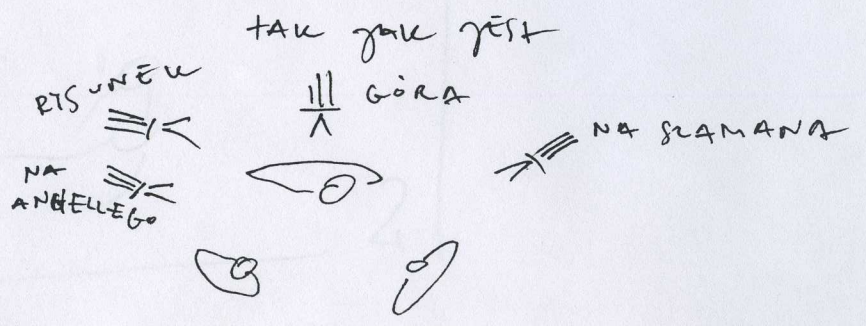 tAK JAK JESt
RYSUNEK
GÓRA
NA SZAMANA
NA
ANHELLEGO